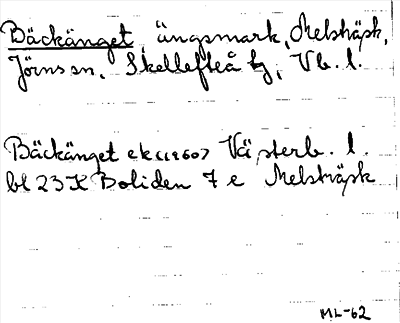 Bäckänget, ängsmark, Melsträsk,
Jörns sn, Skellefteå tg, Vb. l.
Bäckänget ek (1960) Västerb. l.
bl 23 K Boliden 7 e Melsträsk
ML-62